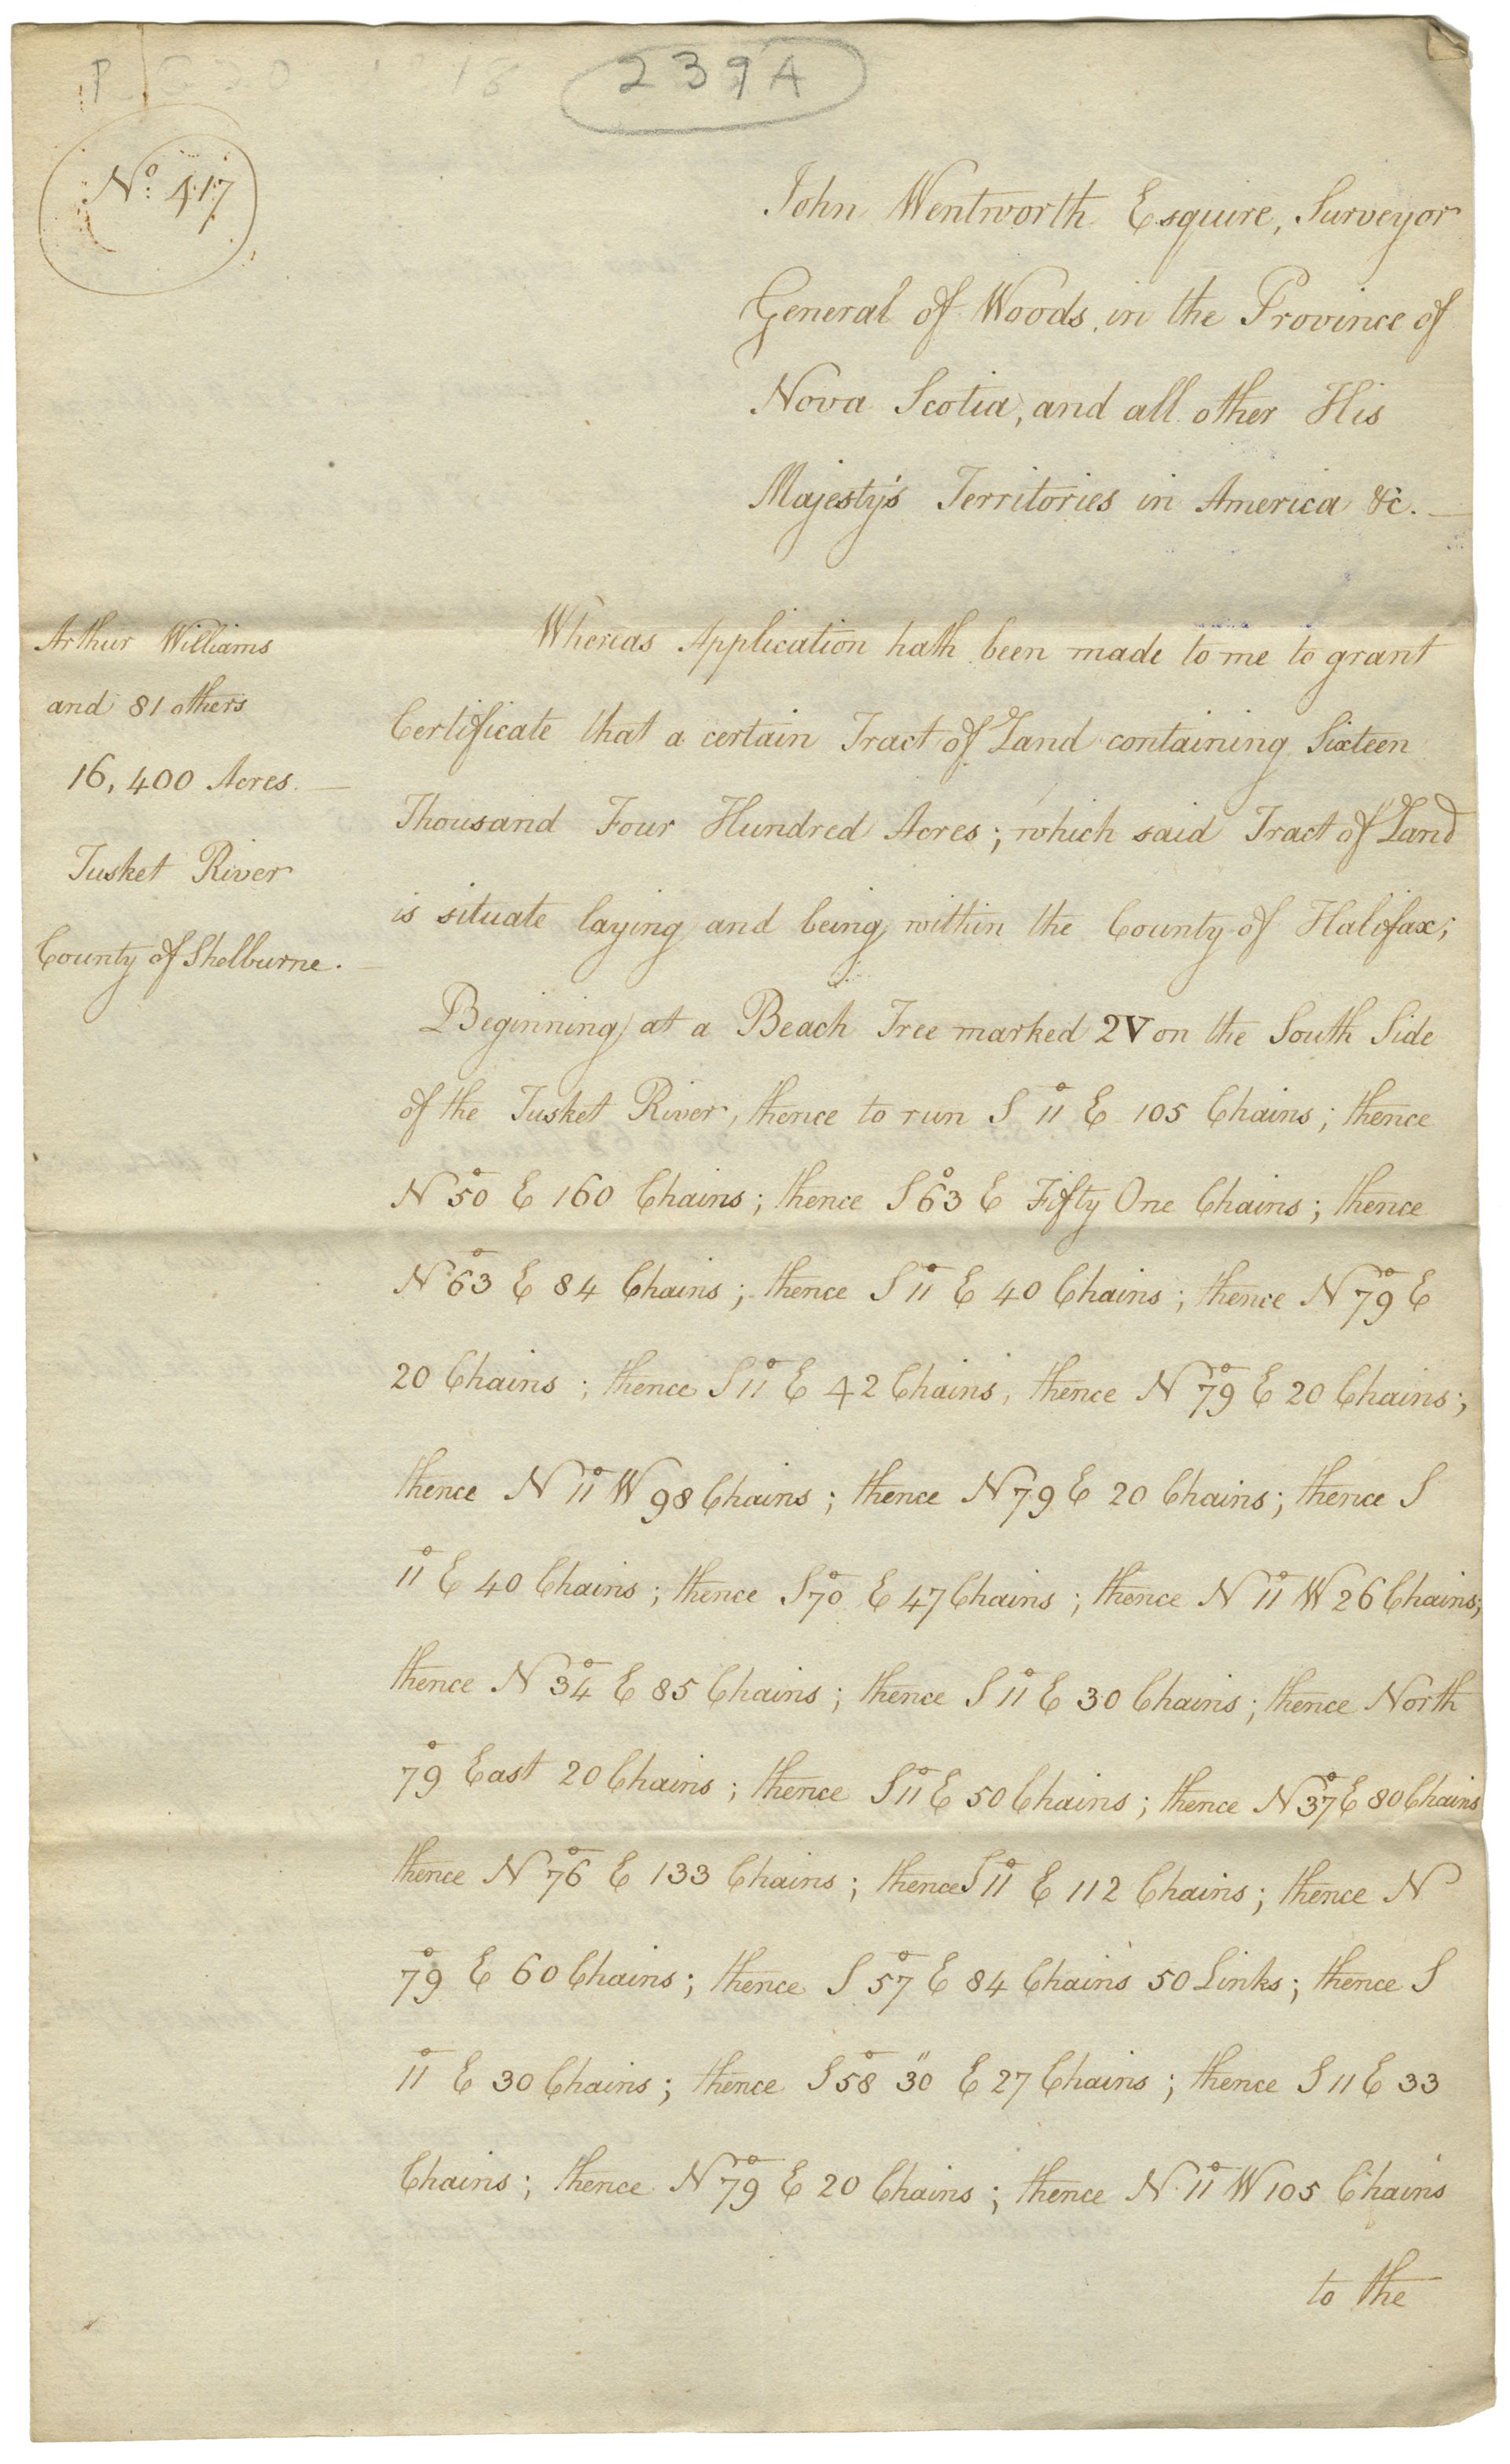 239A
No. 417
John Wentworth Esquire, Surveyor
General of Woods, in the Province of
Nova Scotia, and all other His
Majesty's Territories in America &c. —
Arthur Williams
and 81 others
16,400 Acres. —
Tusket River
County of Shelburne. —
Whereas Application hath been made to me to grant
Certificate that a certain Tract of Land containing Sixteen
Thousand Four Hundred Acres; which said Tract of Land
is situate laying and being within the County of Halifax;
Beginning at a Beach Tree marked 2V on the South Side
of the Tusket River, thence to run S 11° E 105 Chains; thence
N 50° E 160 Chains; thence S 63° E Fifty One Chains; thence
N 63° E 84 Chains; thence S 11° E 40 Chains; thence N 79° E
20 Chains; thence S 11° E 42 Chains, thence N 79° E 20 Chains;
thence N 11° W 98 Chains; thence N 79 E 20 Chains; thence S
11° E 40 Chains; thence S 70° E 47 Chains; thence N 11° W 26 Chains;
thence N 34° E 85 Chains; thence S 11° E 30 Chains; thence North
79° East 20 Chains; thence S 11° E 50 Chains; thence N 37° E 80 Chains
thence N 76° E 133 Chains; thence S 11° E 112 Chains; thence N
79° E 60 Chains; thence S 57° E 84 Chains 50 Links; thence S
11° E 30 Chains; thence S 58° 30" E 27 Chains; thence S 11 E 33
Chains; thence N 79° E 20 Chains; thence N 11° W 105 Chains
to the